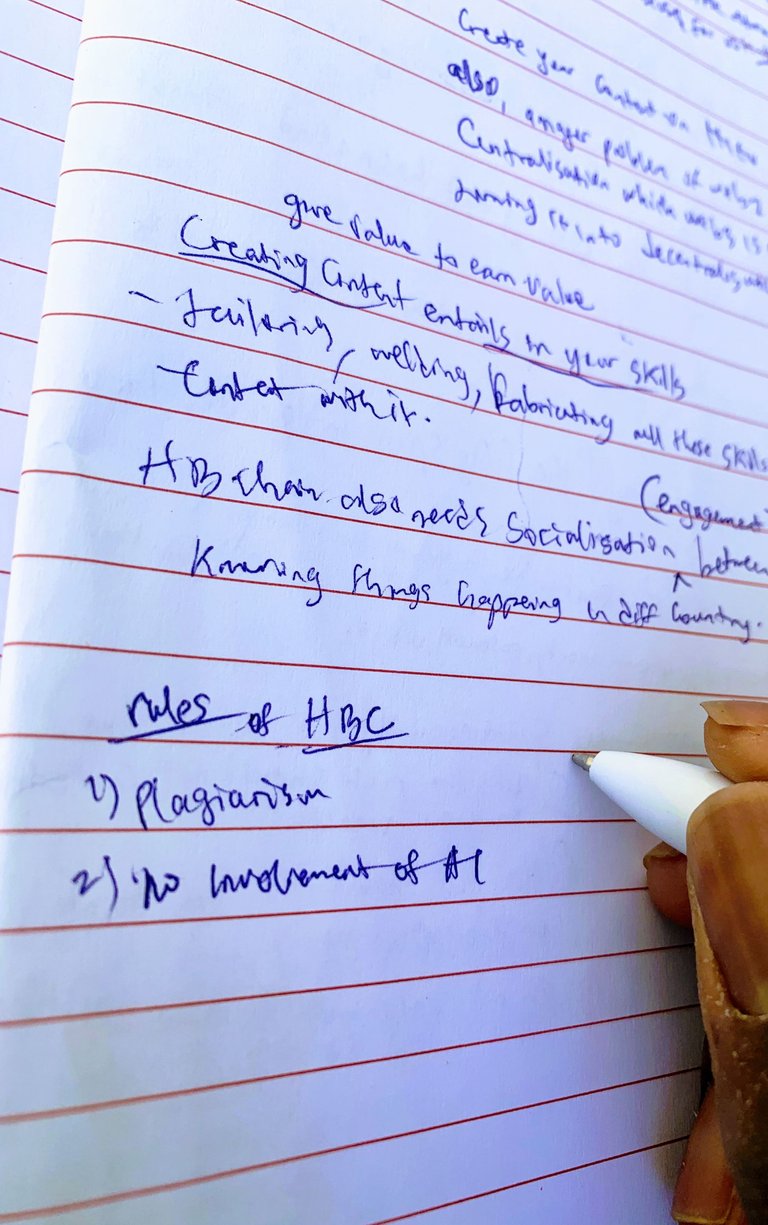 Create your Content on
also, problem of web2
Centralisation which is
turning it into decentralised
give value to earn value
Creating Content entails in your skills
- Tailoring, welding, fabricating all these skills
- Content with it.
HB chain also needs Socialisation between
(engagement
Knowing things happening in diff Country.
rules of HBC
1) Plagiarism
2) No involvement of AI